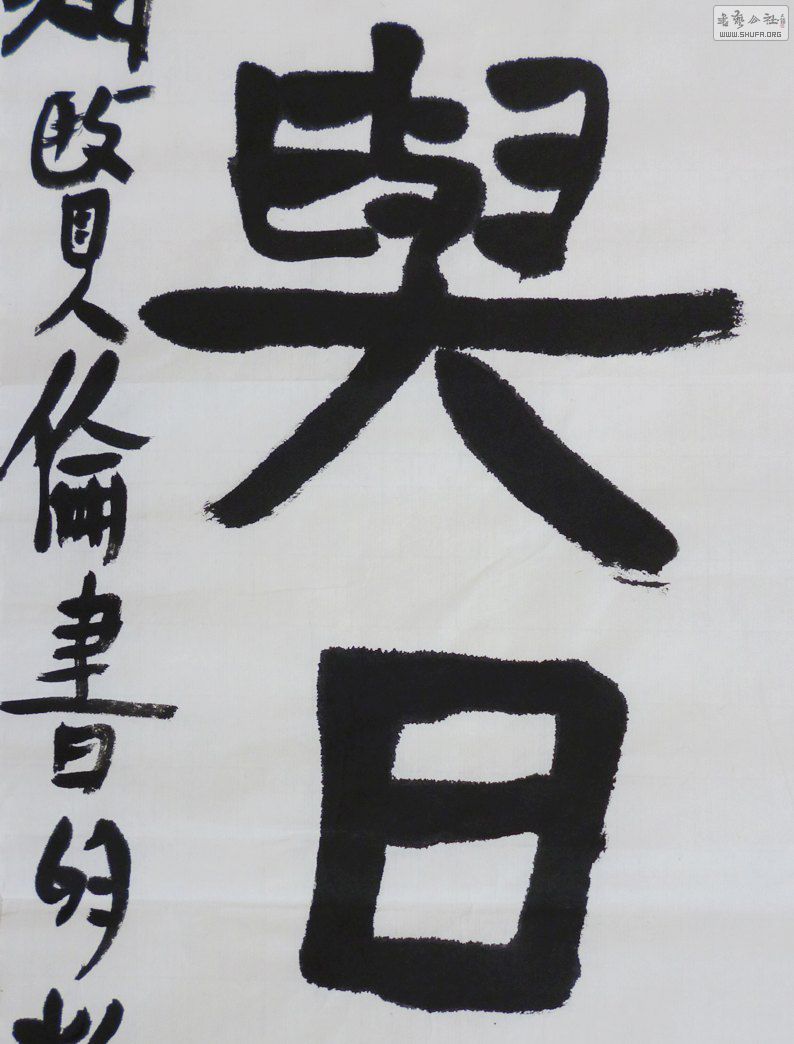 與日
賢倫書於
書藝公社
WWW.SHUFA.ORG